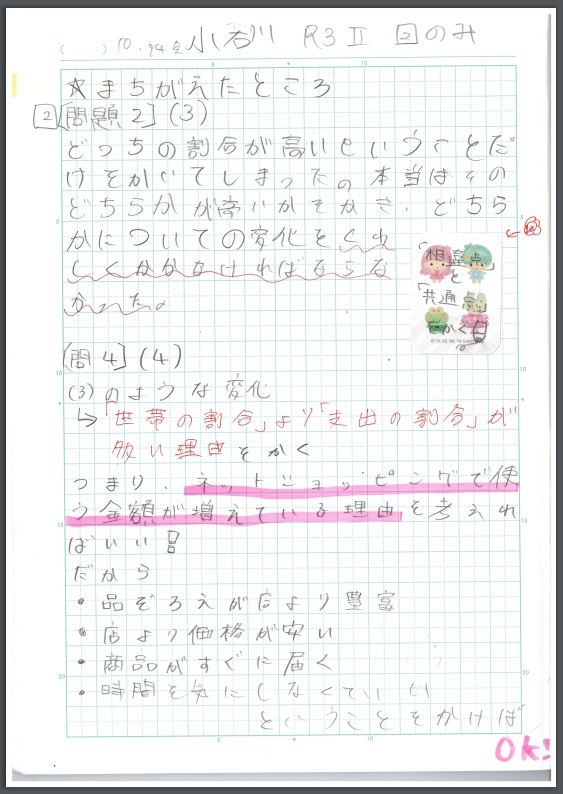 ( ) 10.24金 小石川 R3Ⅱ ②のみ
☆まちがえたところ
②[問題2](3)
どっちの割合が高いということだ
けをかいてしまった。本当はその
どちらかが高いかをかき、どちら
かについての変化をくわ
しくかかなければならな
かった。
「相違点」
と
「共通点」
をかく
[問4](4)
(3)のような変化
↳「世帯の割合」より「支出の割合」が
多い理由をかく
つまり、ネットショッピングで使
う金額が増えている理由を考えれ
ばいい!
だから
・品ぞろえが店より豊富
・店より価格が安い
・商品がすぐに届く
・時間を気にしなくていい
ということをかけば
OK!